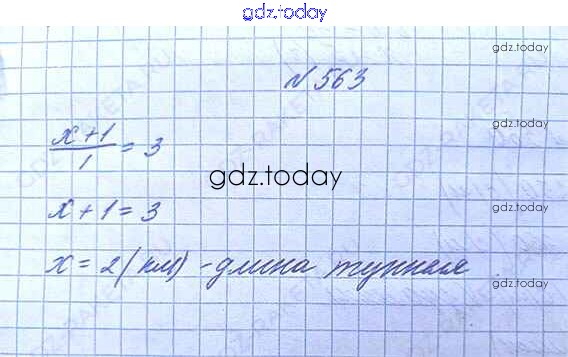 gdz.today
gdz.today
№ 563
gdz.today
(x+1)/1 = 3
gdz.today
x+1=3
x=2 (км) - длина туннеля
gdz.today